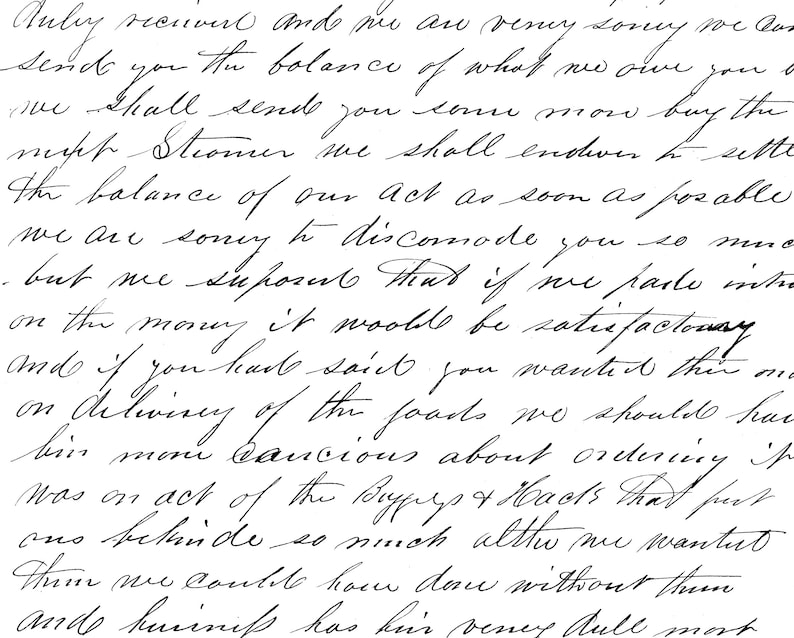 duly received and we are verey sorrey we can
send you the balance of what we owe you
we shall send you some more buy the
next Steamer we shall endever to settle
the balance of our act as soon as posable
we are sorrey to discomode you so much
but we suposed that if we pade intr
on the money it woold be satisfactorry
and if you had said you wanted the
on delivirey of the goods we should hav
bin more caucious about ordering it
was on act of the Buggeys & Hacks that put
ous behinde so much altho we wanted
them we could have done without them
and buisness has bin verey dull most